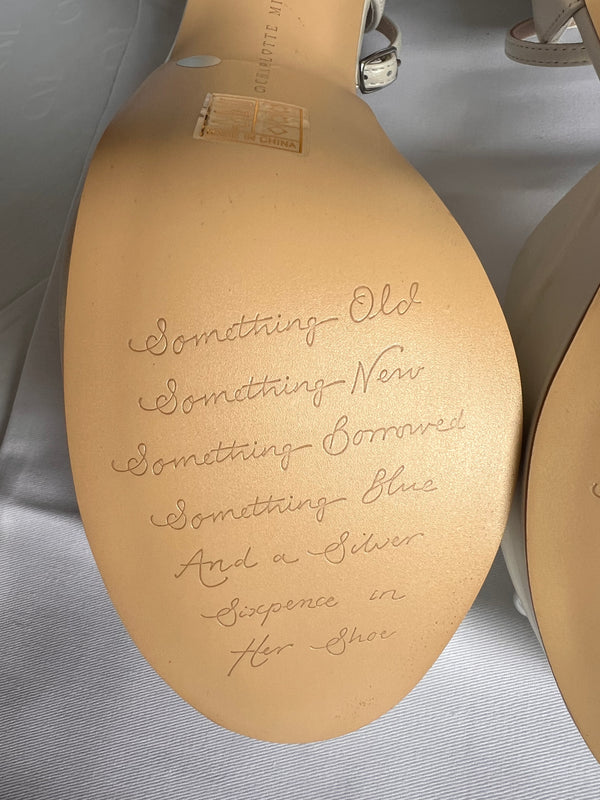 ©CHARLOTTE MI
MADE IN CHINA
Something Old
Something New
Something Borrowed
Something Blue
And a Silver
Sixpence in
Her Shoe